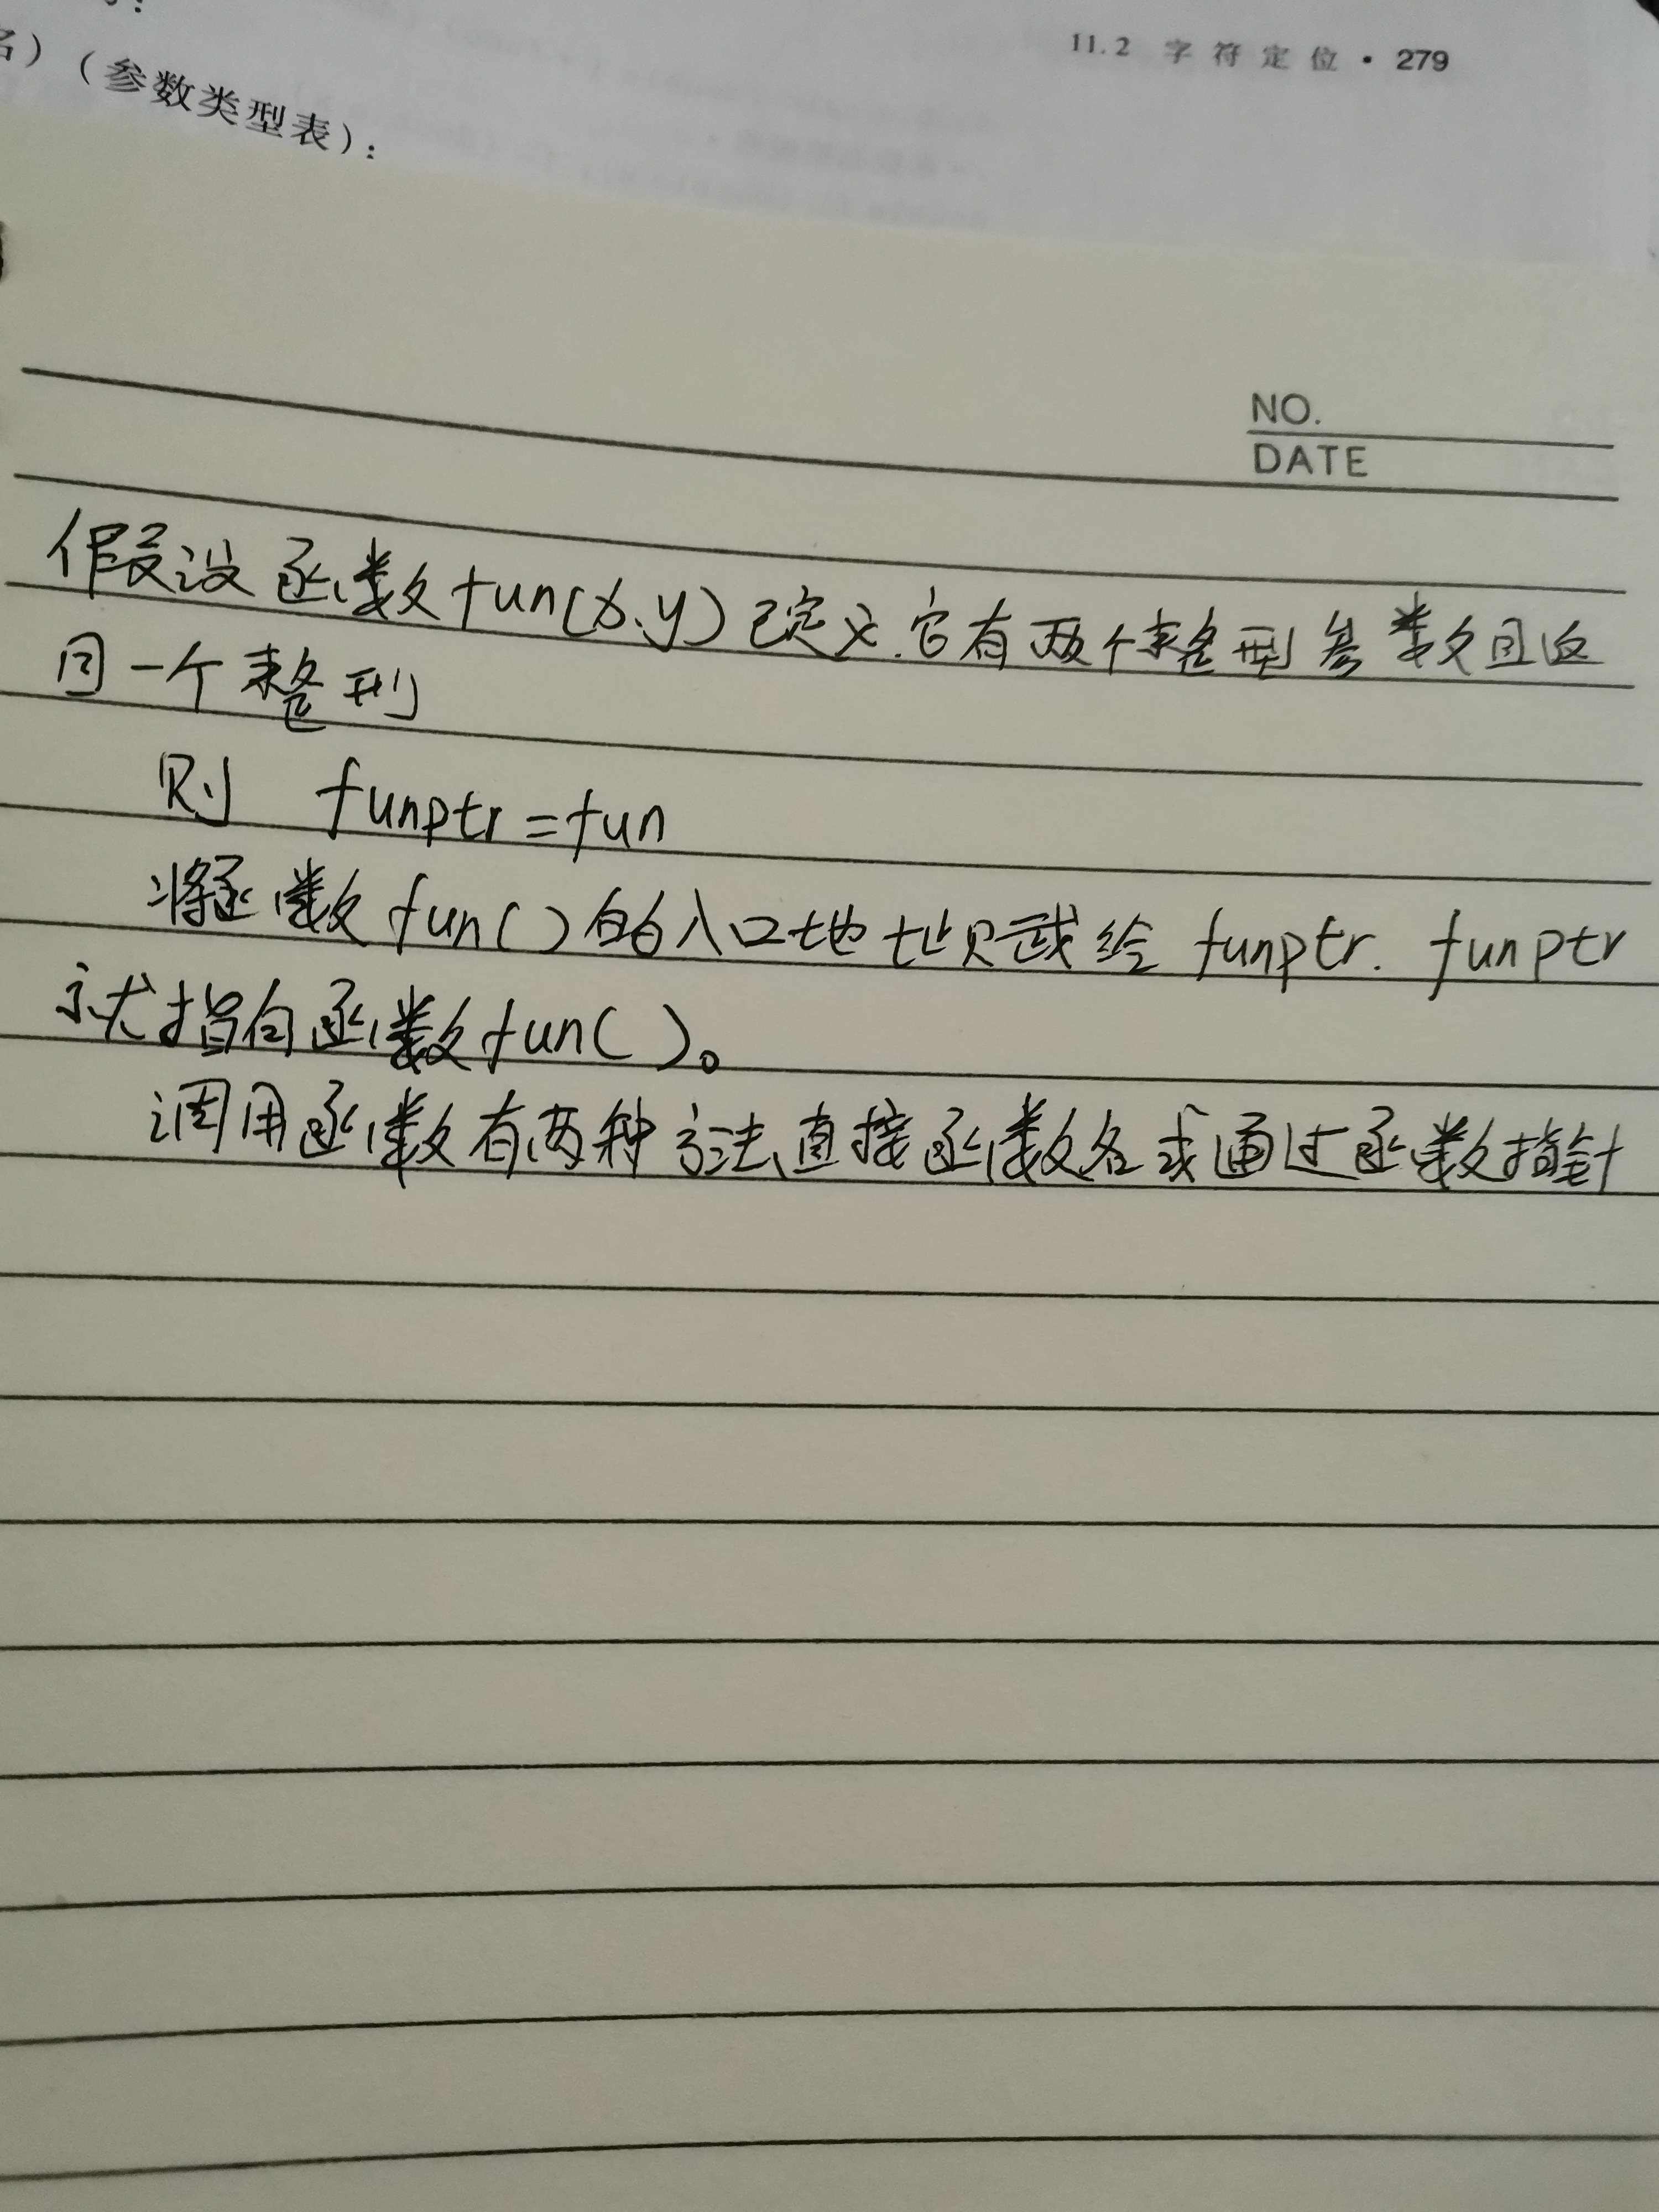 11.2 字符定位·279
名）（参数类型表）：
NO.
DATE
假设函数fun(x,y)已定义.它有两个整型参数且返
回一个整型
则 funptr=fun
将函数fun()的入口地址赋给 funptr. funptr
就指向函数fun()。
调用函数有两种方法,直接函数名或通过函数指针